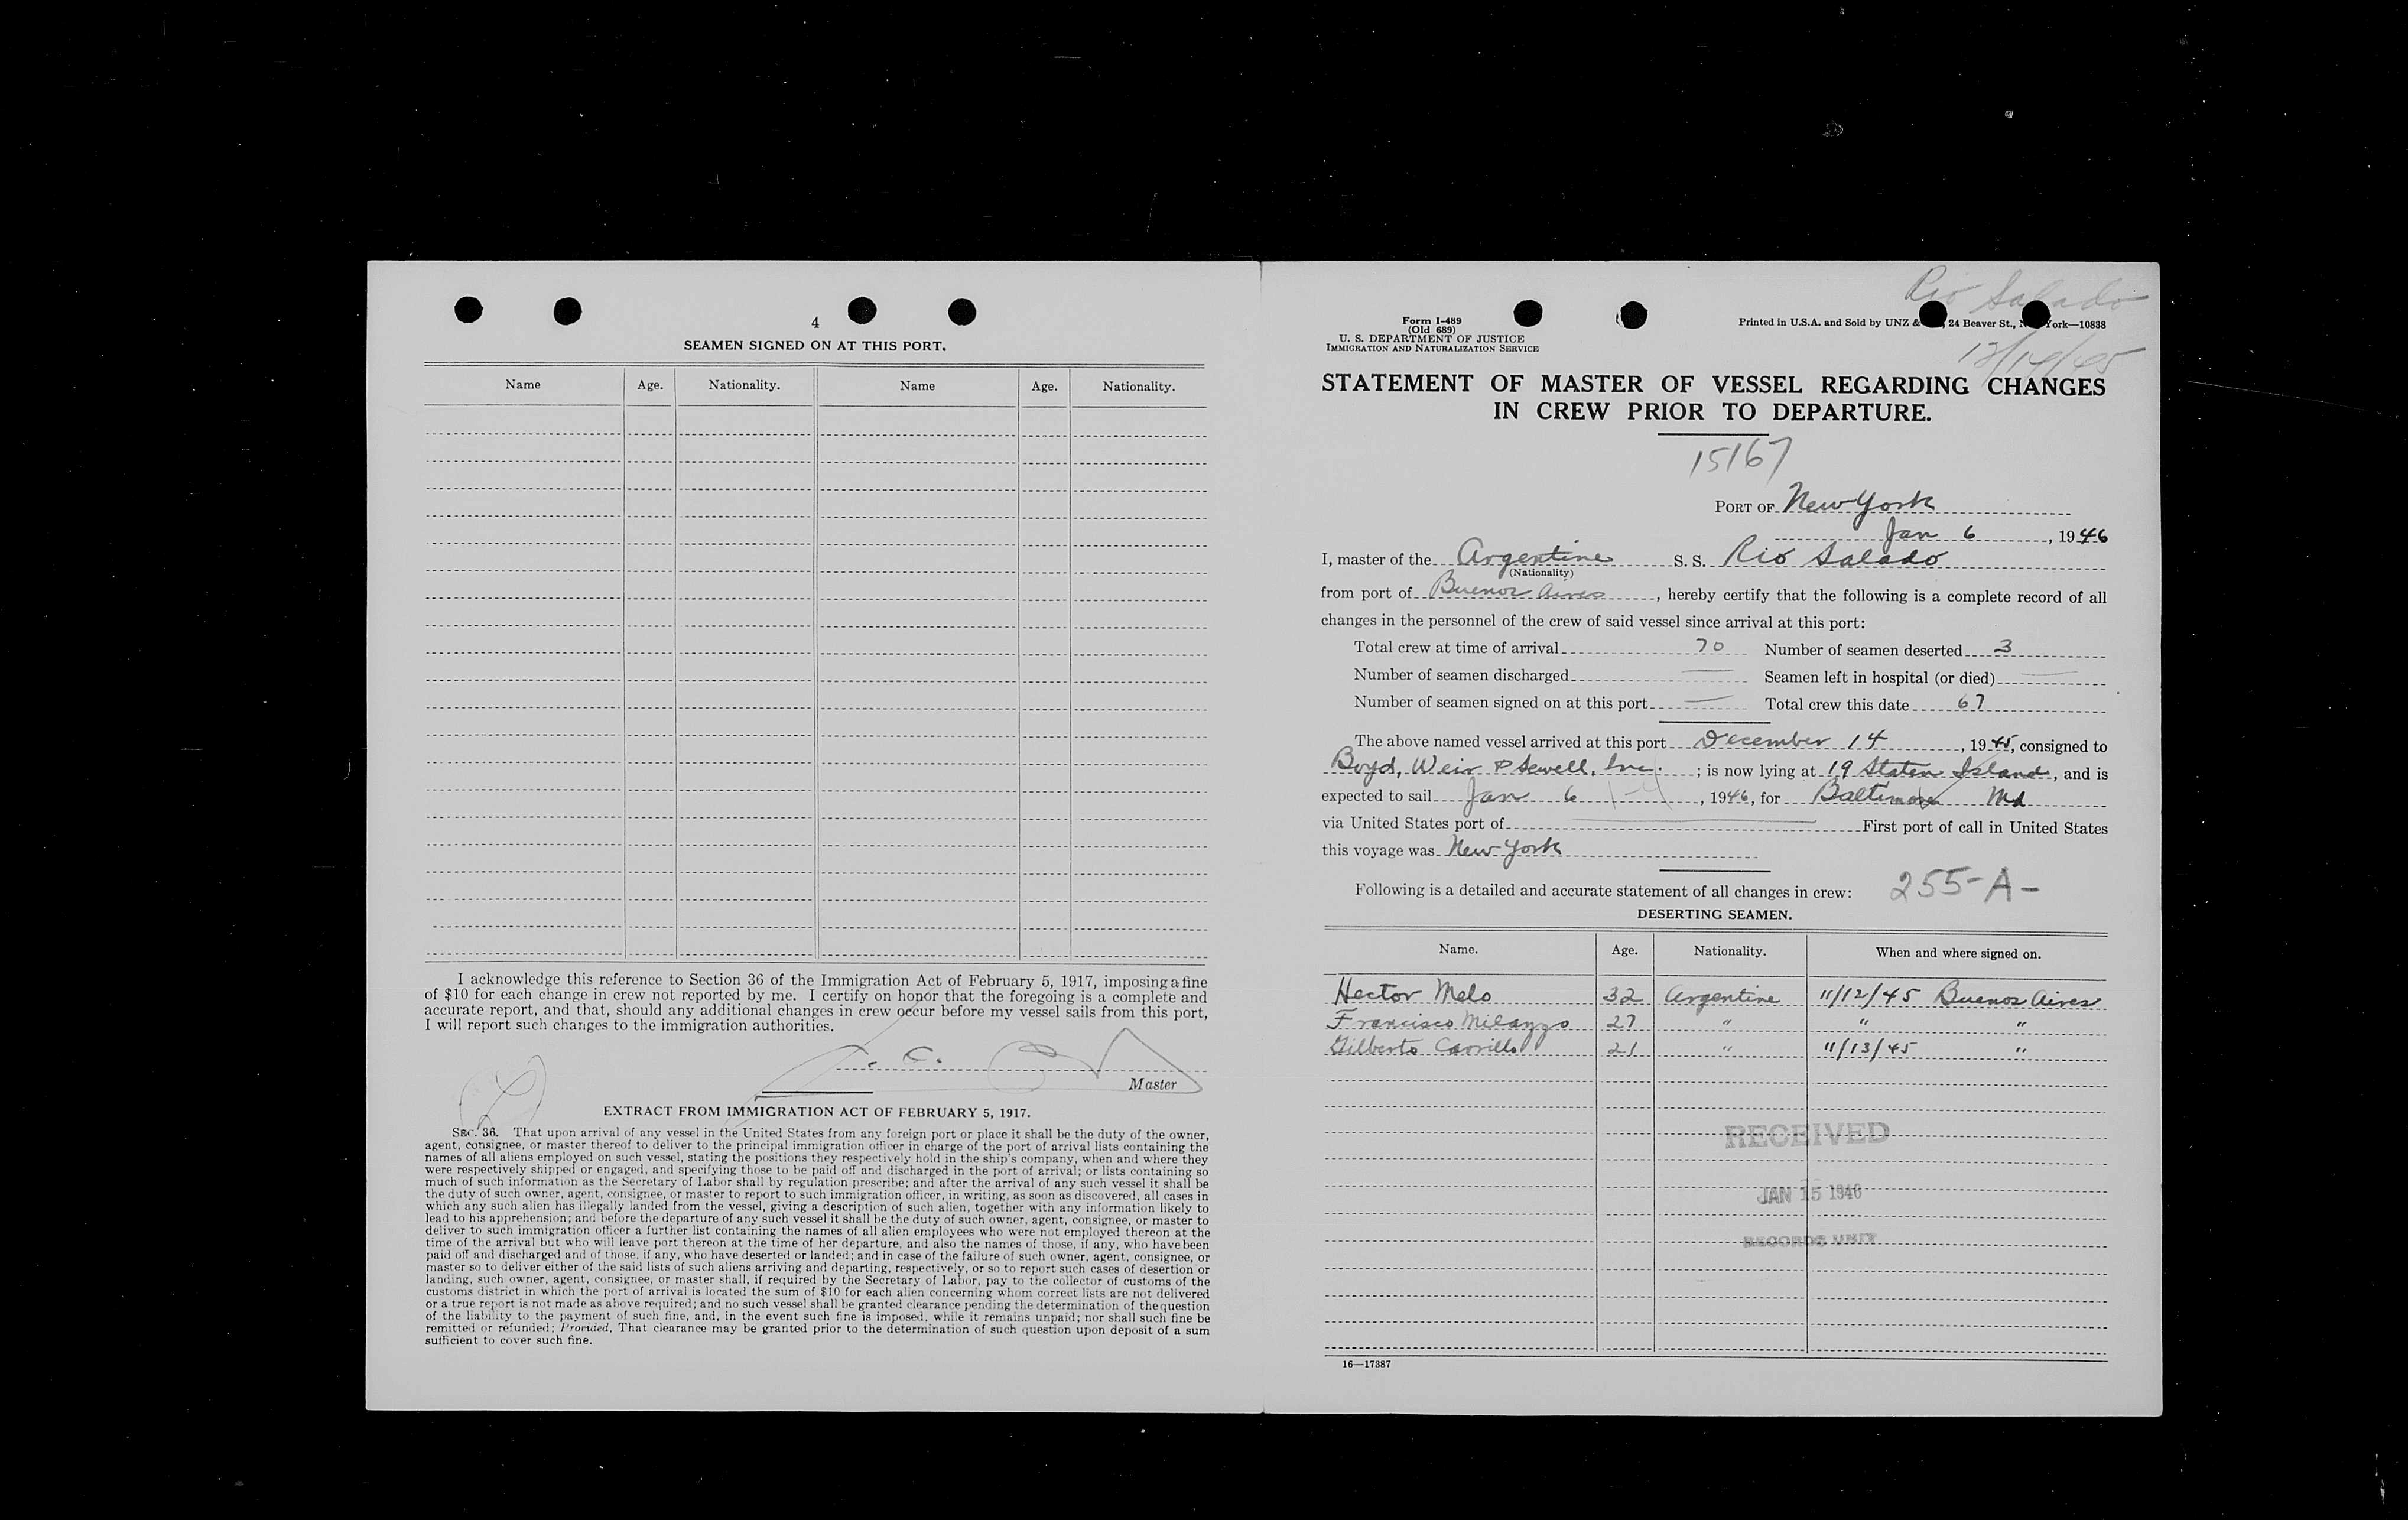 4
SEAMEN SIGNED ON AT THIS PORT.
Name Age. Nationality. Name Age. Nationality.
I acknowledge this reference to Section 36 of the Immigration Act of February 5, 1917, imposing a fine
of $10 for each change in crew not reported by me. I certify on honor that the foregoing is a complete and
accurate report, and that, should any additional changes in crew occur before my vessel sails from this port,
I will report such changes to the immigration authorities.
Master
EXTRACT FROM IMMIGRATION ACT OF FEBRUARY 5, 1917.
SEC. 36. That upon arrival of any vessel in the United States from any foreign port or place it shall be the duty of the owner,
agent, consignee, or master thereof to deliver to the principal immigration officer in charge of the port of arrival lists containing the
names of all aliens employed on such vessel, stating the positions they respectively hold in the ship's company, when and where they
were respectively shipped or engaged, and specifying those to be paid off and discharged in the port of arrival; or lists containing so
much of such information as the Secretary of Labor shall by regulation prescribe; and after the arrival of any such vessel it shall be
the duty of such owner, agent, consignee, or master to report to such immigration officer, in writing, as soon as discovered, all cases in
which any such alien has illegally landed from the vessel, giving a description of such alien, together with any information likely to
lead to his apprehension; and before the departure of any such vessel it shall be the duty of such owner, agent, consignee, or master to
deliver to such immigration officer a further list containing the names of all alien employees who were not employed thereon at the
time of the arrival but who will leave port thereon at the time of her departure, and also the names of those, if any, who have been
paid off and discharged and of those, if any, who have deserted or landed; and in case of the failure of such owner, agent, consignee, or
master so to deliver either of the said lists of such aliens arriving and departing, respectively, or so to report such cases of desertion or
landing, such owner, agent, consignee, or master shall, if required by the Secretary of Labor, pay to the collector of customs of the
customs district in which the port of arrival is located the sum of $10 for each alien concerning whom correct lists are not delivered
or a true report is not made as above required; and no such vessel shall be granted clearance pending the determination of the question
of the liability to the payment of such fine, and, in the event such fine is imposed, while it remains unpaid; nor shall such fine be
remitted or refunded; Provided, That clearance may be granted prior to the determination of such question upon deposit of a sum
sufficient to cover such fine.
Rio Salado
12/14/45
Form I-489
(Old 689)
U. S. DEPARTMENT OF JUSTICE
IMMIGRATION AND NATURALIZATION SERVICE
Printed in U.S.A. and Sold by UNZ & 24 Beaver St., York—10838
STATEMENT OF MASTER OF VESSEL REGARDING CHANGES
IN CREW PRIOR TO DEPARTURE.
15167
PORT OF New York
Jan 6, 1946
I, master of the Argentine S. S. Rio Salado
(Nationality)
from port of Buenos Aires, hereby certify that the following is a complete record of all
changes in the personnel of the crew of said vessel since arrival at this port:
Total crew at time of arrival 70 Number of seamen deserted 3
Number of seamen discharged — Seamen left in hospital (or died) —
Number of seamen signed on at this port — Total crew this date 67
The above named vessel arrived at this port December 14, 1945, consigned to
Boyd, Weir & Sewell, Inc.; is now lying at 19 Staten Island, and is
expected to sail Jan 6, 1946, for Baltimore Md
via United States port of — First port of call in United States
this voyage was New York
Following is a detailed and accurate statement of all changes in crew: 255-A-
DESERTING SEAMEN.
Name. Age. Nationality. When and where signed on.
Hector Melo 32 Argentine 11/12/45 Buenos Aires
Francisco Milazzo 27 " " "
Gilberto Carrillo 21 " 11/13/45 "
RECEIVED
JAN 15 1946
RECORDS UNIT
16—17387